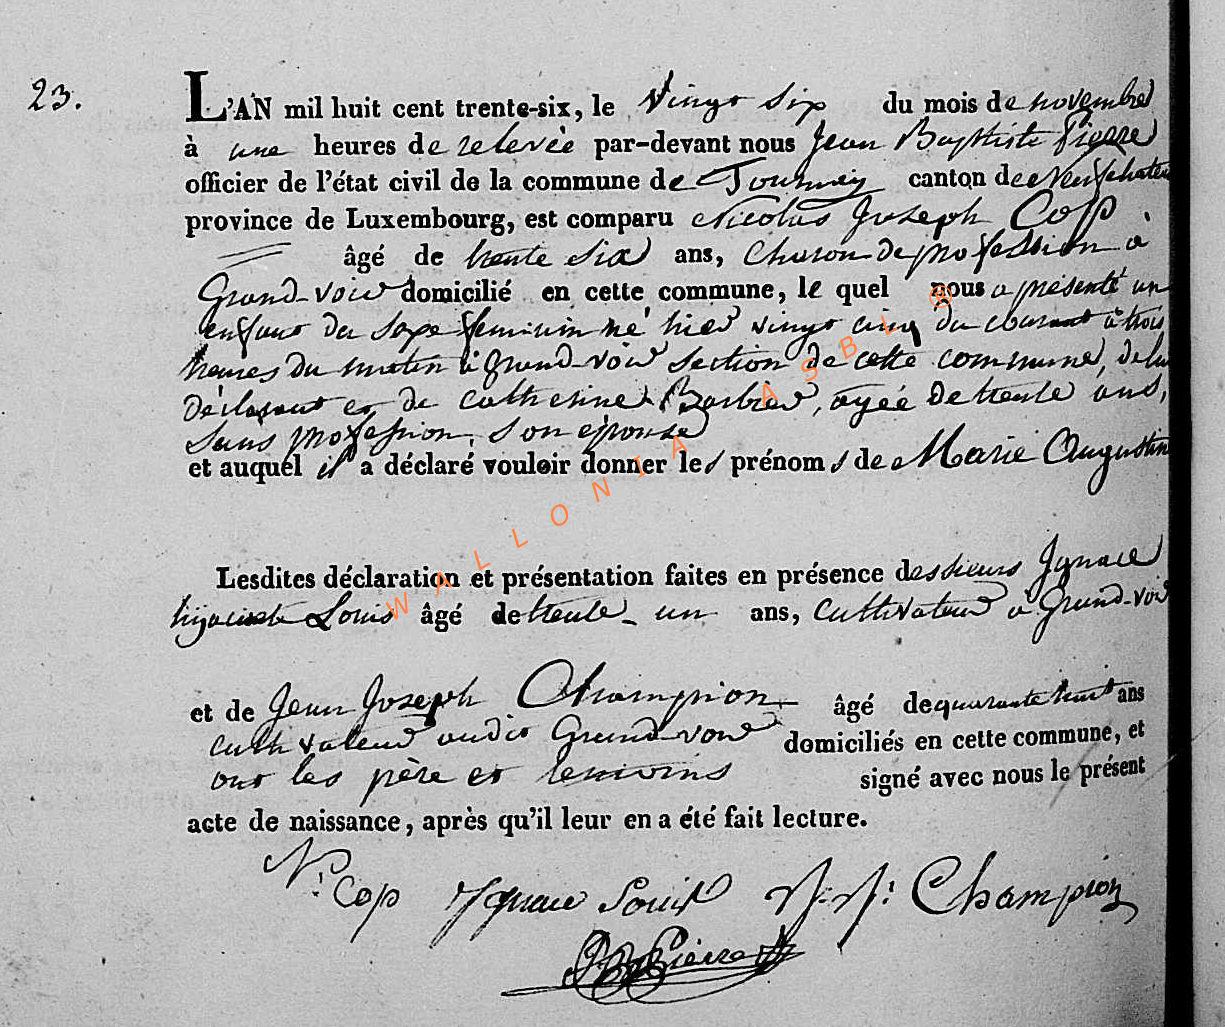 23.
L'AN mil huit cent trente-six, le vingt six du mois de novembre
à une heures de relevée par-devant nous Jean Baptiste Pierre
officier de l'état civil de la commune de Tournay canton de Neufchateau
province de Luxembourg, est comparu Nicolas Joseph Cop
âgé de trente six ans, charon de profession à
Grand-voir domicilié en cette commune, le quel nous a présenté un
enfant du sexe feminin né hier vingt cinq du courant à trois
heures du matin à grand-voir section de cette commune, de lui
déclarant et de catherine Barbier, agée de trente ans,
sans profession, son épouse
et auquel il a déclaré vouloir donner les prénoms de Marie Augustine
Lesdites déclaration et présentation faites en présence des sieurs Ignace
hyacinte Louis âgé de trente-un ans, cultivateur à Grand-voir
et de Jean Joseph Champion âgé de quarante huit ans
cultivateur audit Grand-voir domiciliés en cette commune, et
ont les père et temoins signé avec nous le présent
acte de naissance, après qu'il leur en a été fait lecture.
N: Cop Ignace Louis J: J: Champion
JB Pierre
WALLONIA ASBL ®